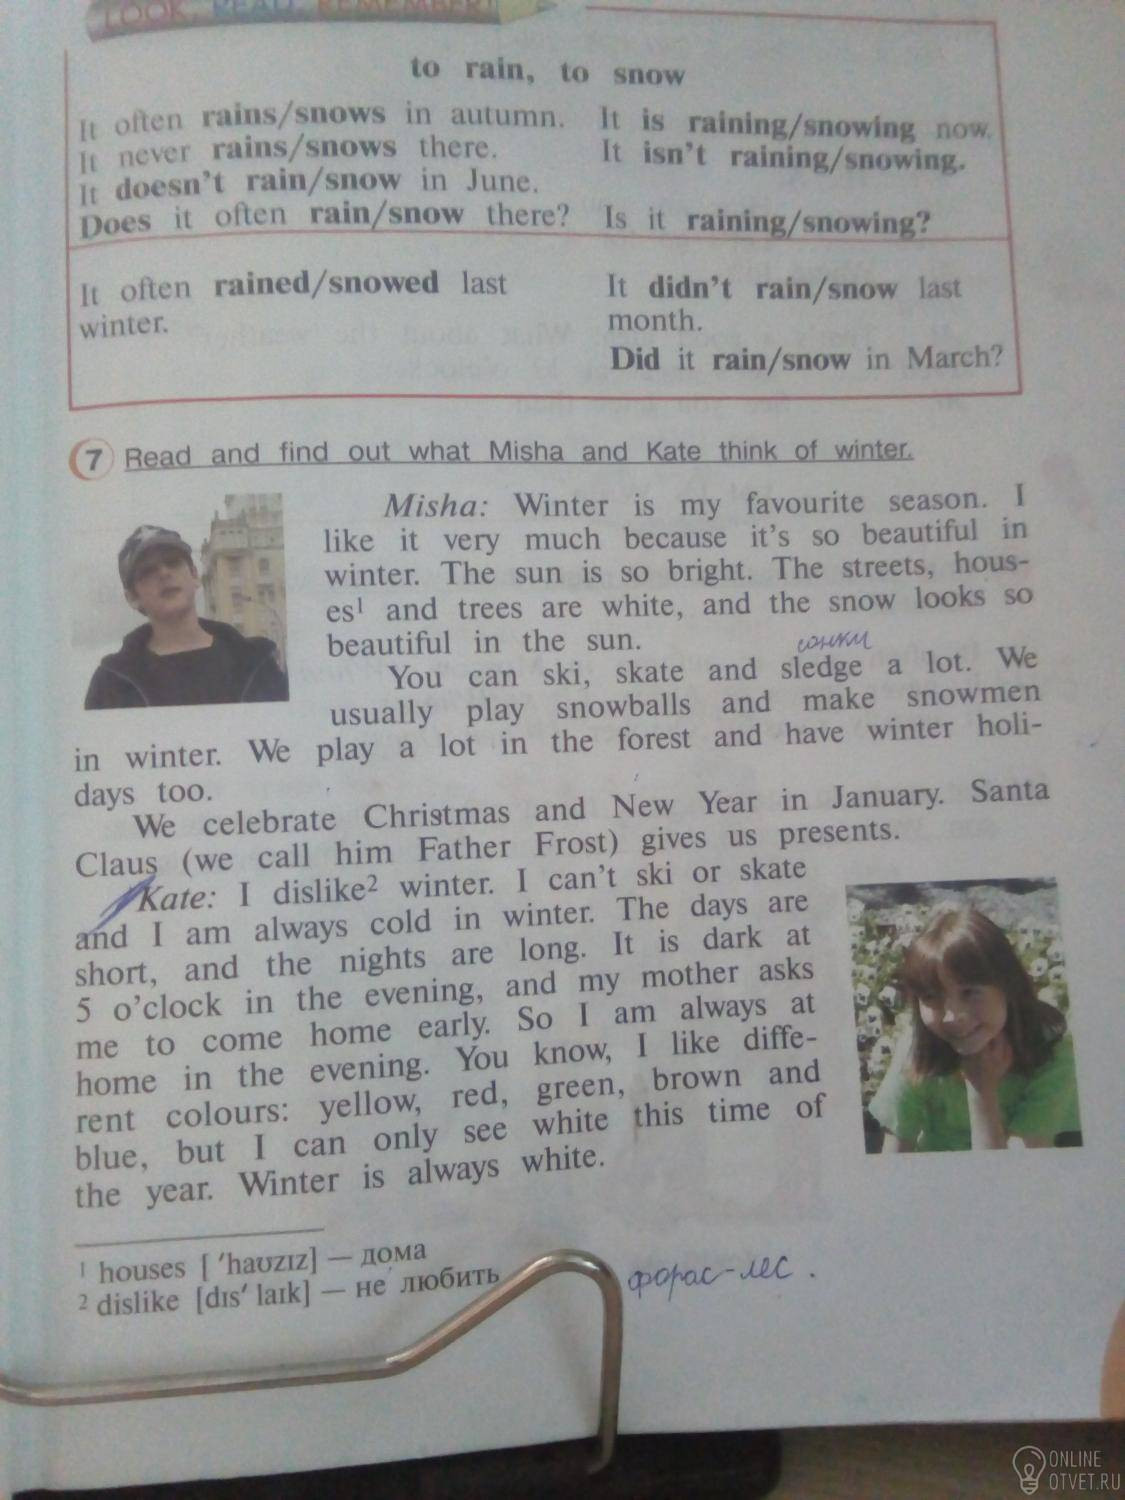 LOOK, READ, REMEMBER!
to rain, to snow
It often rains/snows in autumn. It is raining/snowing now.
It never rains/snows there. It isn't raining/snowing.
It doesn't rain/snow in June.
Does it often rain/snow there? Is it raining/snowing?
It often rained/snowed last
winter.
It didn't rain/snow last
month.
Did it rain/snow in March?
7 Read and find out what Misha and Kate think of winter.
Misha: Winter is my favourite season. I
like it very much because it's so beautiful in
winter. The sun is so bright. The streets, hous-
es¹ and trees are white, and the snow looks so
beautiful in the sun.
санки
You can ski, skate and sledge a lot. We
usually play snowballs and make snowmen
in winter. We play a lot in the forest and have winter holi-
days too.
We celebrate Christmas and New Year in January. Santa
Claus (we call him Father Frost) gives us presents.
Kate: I dislike² winter. I can't ski or skate
and I am always cold in winter. The days are
short, and the nights are long. It is dark at
5 o'clock in the evening, and my mother asks
me to come home early. So I am always at
home in the evening. You know, I like diffe-
rent colours: yellow, red, green, brown and
blue, but I can only see white this time of
the year. Winter is always white.
¹ houses [ ′haʊzɪz] — дома
² dislike [dɪs′ laɪk] — не любить
форас-лес.
ONLINE
OTVET.RU